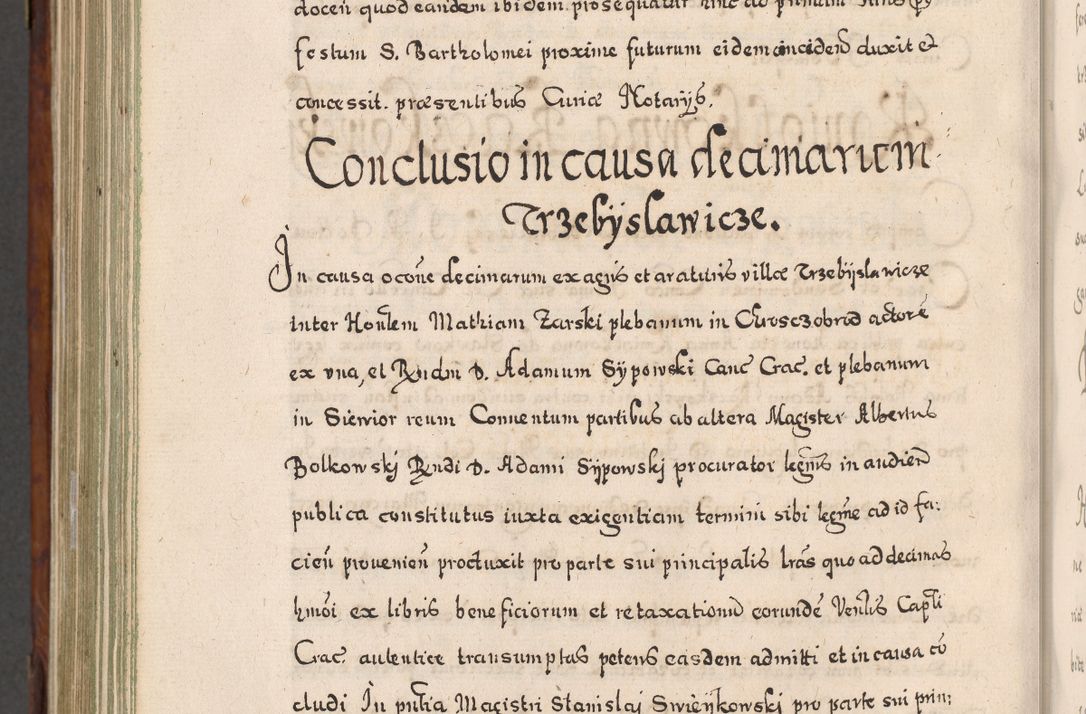 docen̄ quod eandem ibidem prosequatur hinc ad primum
festum S. Bartholomei proxime futurum eidem incideñ duxit et
concessit. præsentibus Curiæ Notarÿs.
Conclusio in causa decimarum
Trzebÿslawicze.
In causa occoñe decimarum ex agris et araturis villæ Trzebÿslawicze
inter Honlem Mathiam Zarski plebanum in Chrosczobrod actorē
ex vna, et Rndm D. Adamum Sÿpowski Canc Crac. et plebanum
in Siewior reum Conuentum partibus ab altera Magister Albertus
Bolkowskj Rndi D. Adami Sÿpowskj procurator legtmus in audien
publica constitutus iuxta exigentiam termini sibi legtme ad id fa:
cien̄ prouenien̄ produxit pro parte sui principalis lrās quo ad decimas
hmōi ex libris beneficiorum et retaxationū eorundē Venlis Capli
Crac. autentice transumptas petens easdem admitti et in causa cō
cludi In pn̄tia Magistri Stanislaj Swiēÿkowskj pro parte sui prin: